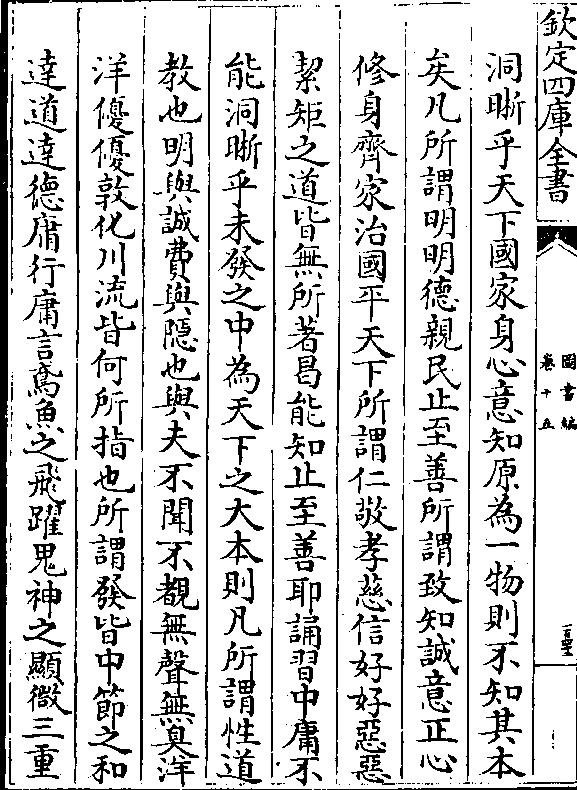 欽定四庫全書
圖書編
卷十五
洞晰乎天下國家身心意知原為一物則不知其本
矣凡所謂明明德親民止至善所謂致知誠意正心
修身齊家治國平天下所謂仁敬孝慈信好好惡惡
絜矩之道皆無所著曷能知止至善耶誦習中庸不
能洞晰乎未發之中為天下之大本則凡所謂性道
教也明與誠費與隱也與夫不聞不覩無聲無臭洋
洋優優敦化川流皆何所指也所謂發皆中節之和
達道達德庸行庸言鳶魚之飛躍鬼神之顯微三重